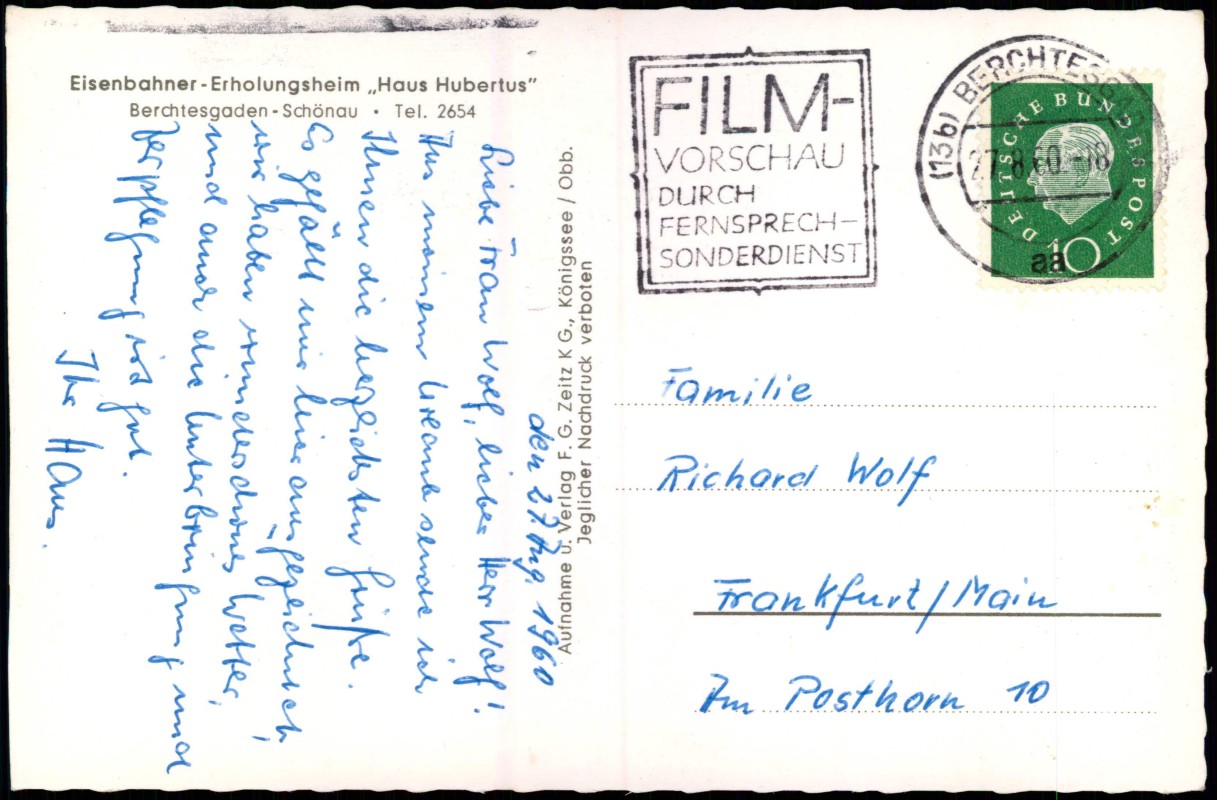 Eisenbahner-Erholungsheim „Haus Hubertus"
Berchtesgaden-Schönau • Tel. 2654
den 27. Aug. 1960
Liebe Frau Wolf, lieber Herr Wolf!
Aus meinem Urlaub sende ich
Ihnen die herzlichsten Grüße.
Es gefällt mir hier ausgezeichnet,
wir haben wunderschönes Wetter,
und auch die Unterbringung und
Verpflegung ist gut.
Ihr Hans.
Aufnahme u. Verlag F. G. Zeitz K G., Königssee / Obb.
Jeglicher Nachdruck verboten
FILM-
VORSCHAU
DURCH
FERNSPRECH-
SONDERDIENST
(13b) BERCHTESGADEN
27.8.60.-18
aa
DEUTSCHE BUNDESPOST
10
Familie
Richard Wolf
Frankfurt/Main
Im Posthorn 10